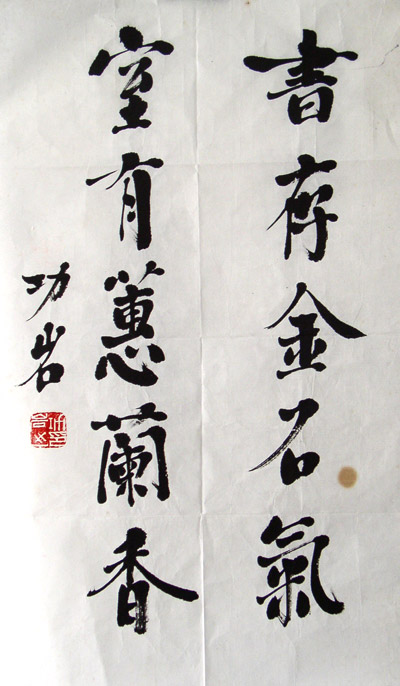 書存金石氣
室有蕙蘭香
功岩